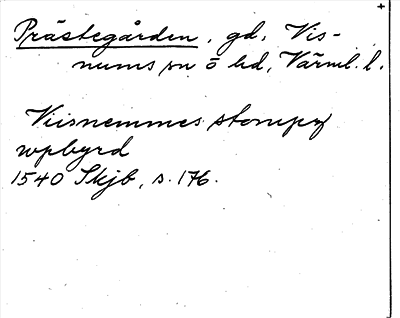 Prästegården, gd, Vis-
nums sn ö hd, Värml. l.
Viisnemmes stompn
wpbyrd
1540 Skjb, s. 176.